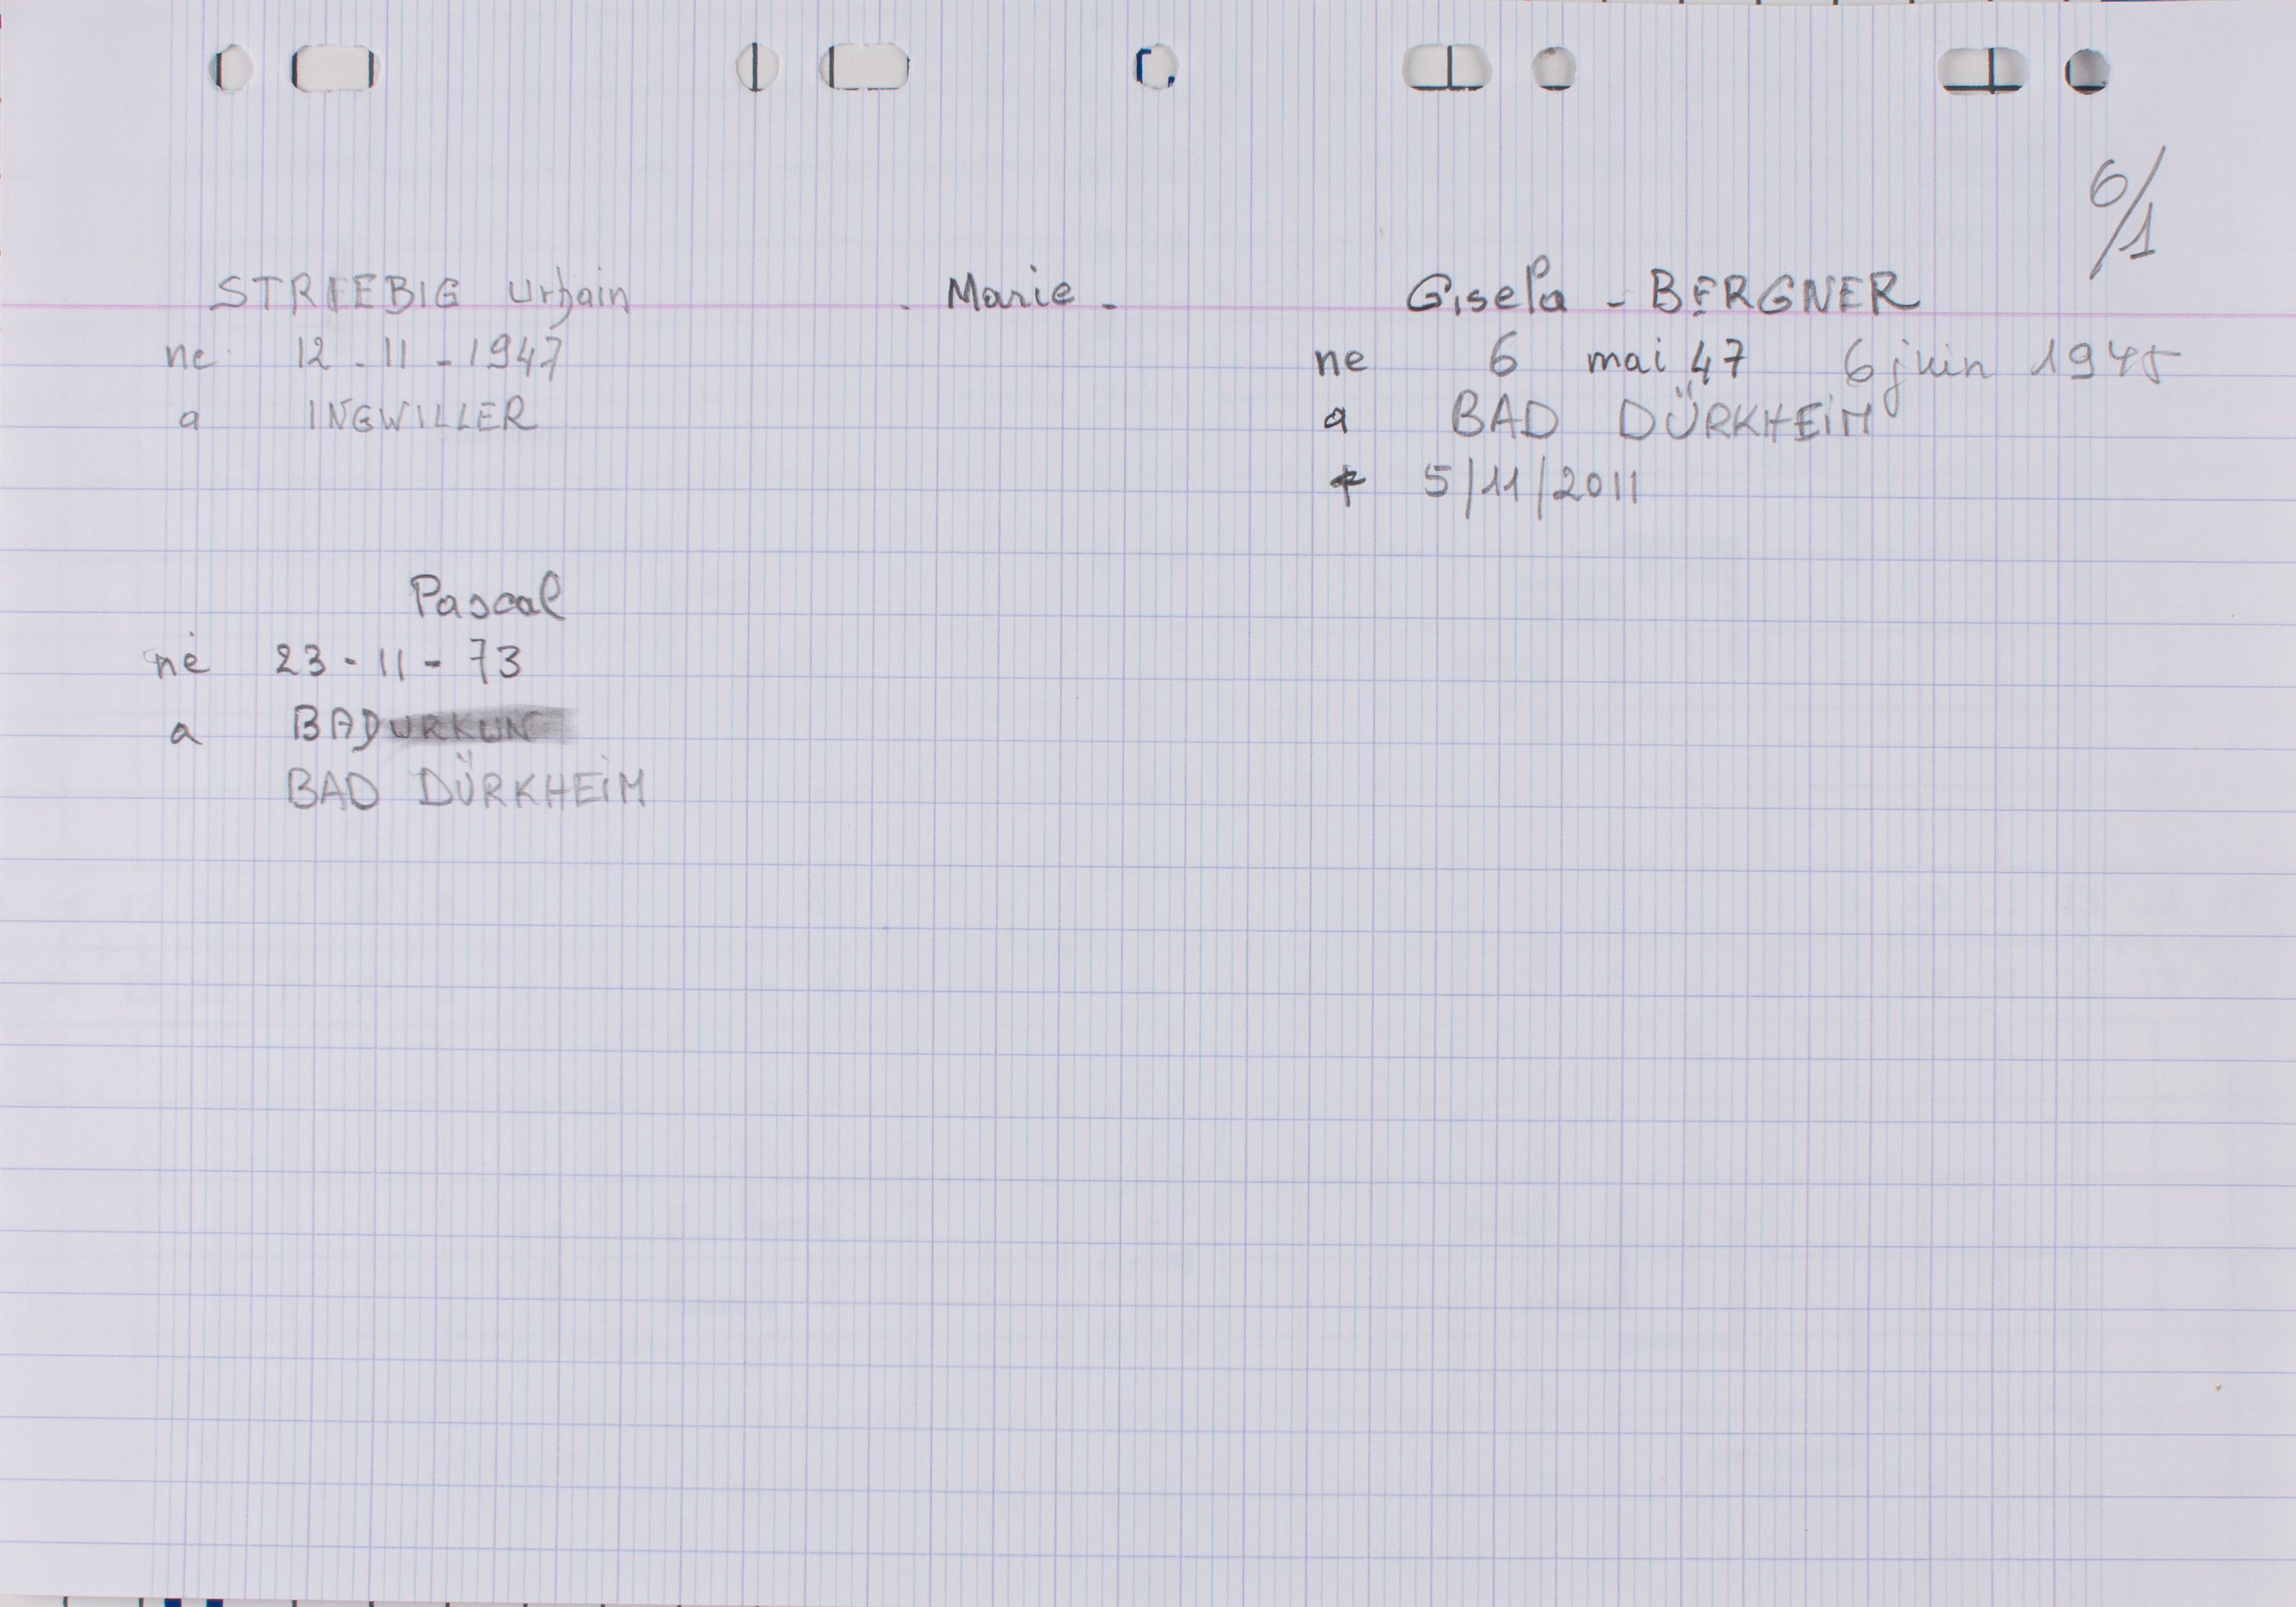 6/1
STREEBIG Urbain - Marie - Gisela - BERGNER
ne 12 - 11 - 1947 ne 6 mai 47 6 juin 1945
a INGWILLER a BAD DÜRKHEiM
+ 5/11/2011
Pascal
né 23 - 11 - 73
a BADURKUN
BAD DÜRKHEiM